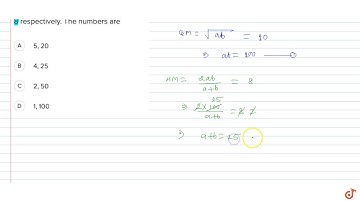 respectively. The numbers are
A 5, 20
B 4, 25
C 2, 50
D 1, 100
GM = √ab = 10
⇒ ab = 100
HM = 2ab/a+b = 8
⇒ 2×100/a+b = 8
⇒ a+b = 25